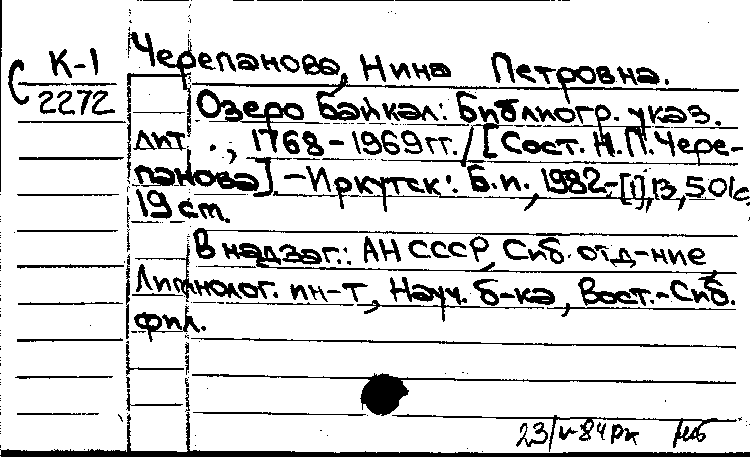 К-1
2272
Черепанова, Нина Петровна.
Озеро Байкал: Библиогр. указ.
лит., 1768-1969 гг. / [Сост. Н.П. Чере-
панова]. - Иркутск: Б.и., 1982. - [1], 13, 501 с.
19 см.
В надзаг.: АН СССР, Сиб. отд-ние
Лимнолог. ин-т, Науч. б-ка, Вост.-Сиб.
фил.
23/V-84